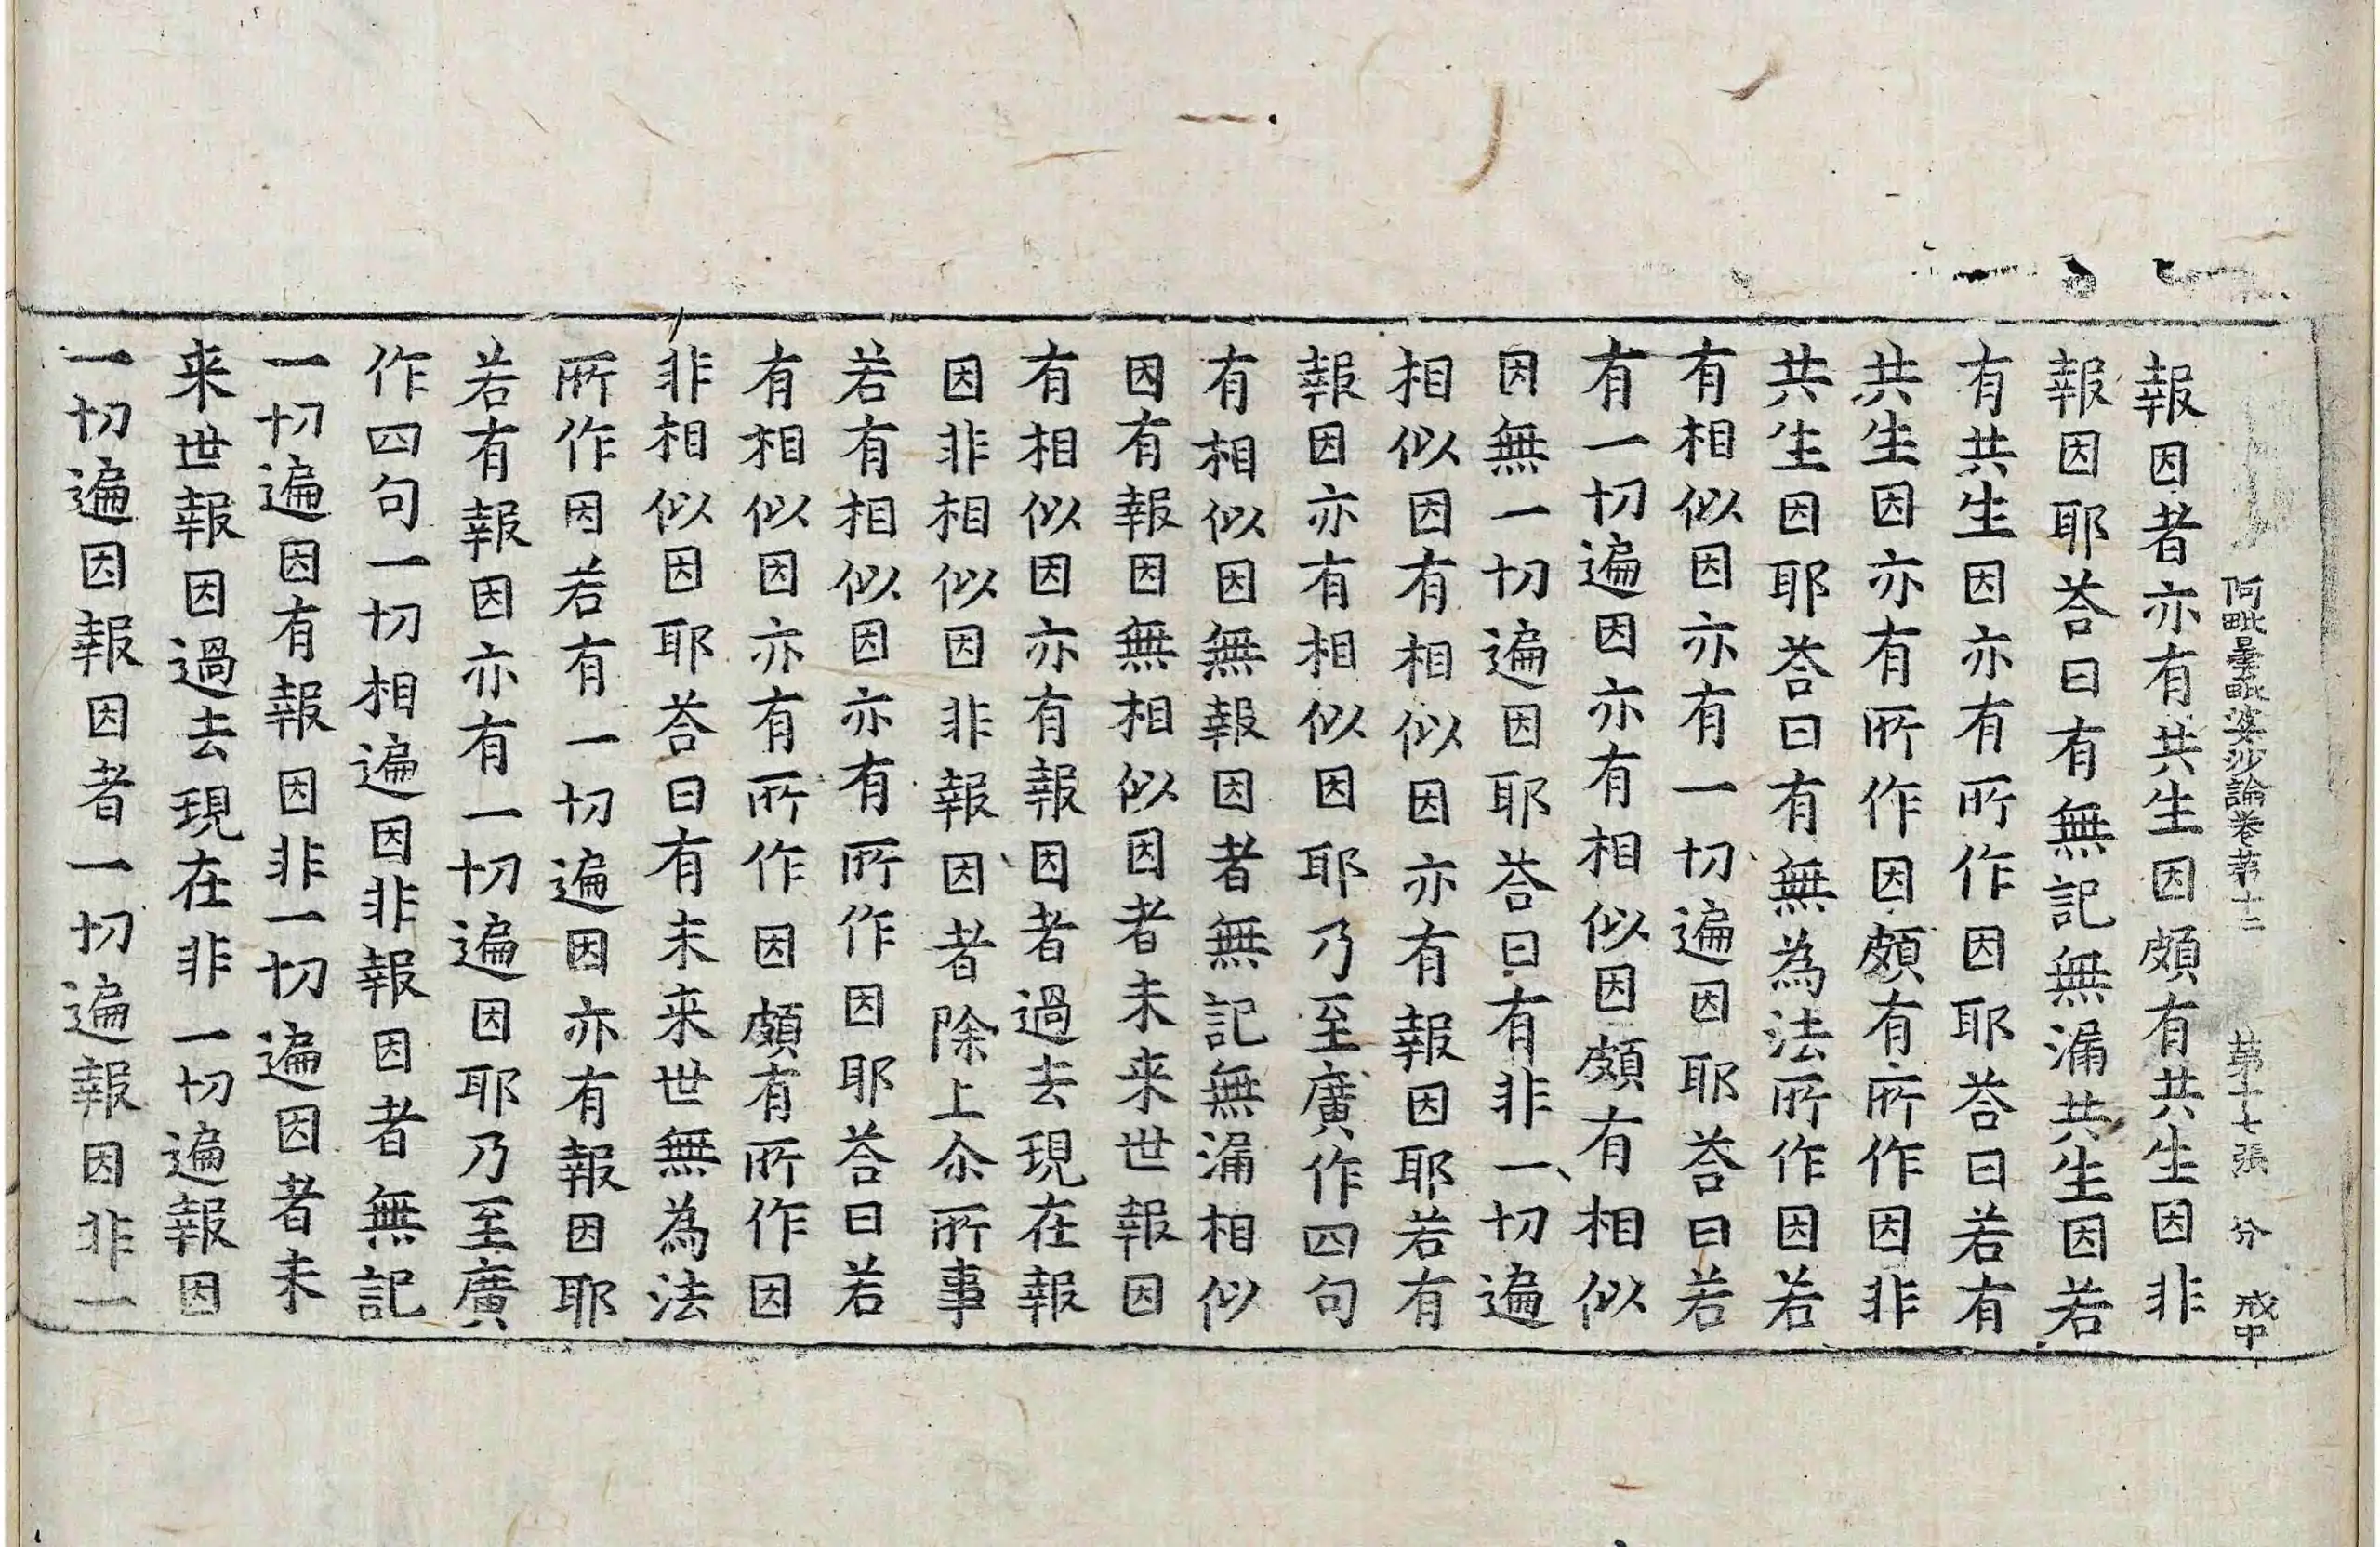 阿毗曇毗婆沙論卷第十二 第十七張 分 戒中
報因者亦有共生因頗有共生因非
報因耶荅曰有無記無漏共生因若
有共生因亦有所作因耶荅曰若有
共生因亦有所作因頗有所作因非
共生因耶荅曰有無為法所作因若
有相似因亦有一切遍因耶荅曰若
有一切遍因亦有相似因頗有相似
因無一切遍因耶荅曰有非一切遍
相似因有相似因亦有報因耶若有
報因亦有相似因耶乃至廣作四句
有相似因無報因者無記無漏相似
因有報因無相似因者未来世報因
有相似因亦有報因者過去現在報
因非相似因非報因者除上尒所事
若有相似因亦有所作因耶荅曰若
有相似因亦有所作因頗有所作因
非相似因耶荅曰有未来世無為法
所作因若有一切遍因亦有報因耶
若有報因亦有一切遍因耶乃至廣
作四句一切相遍因非報因者無記
一切遍因有報因非一切遍因者未
来世報因過去現在非一切遍報因
一切遍因報因者一切遍報因非一